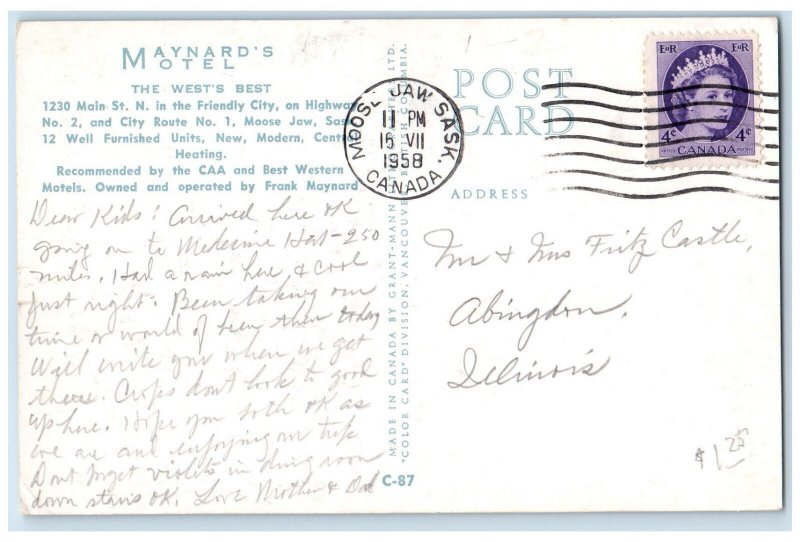 MAYNARD'S
MOTEL
THE WEST'S BEST
1230 Main St. N. in the Friendly City, on Highway
No. 2, and City Route No. 1, Moose Jaw, Sas
12 Well Furnished Units, New, Modern, Cent
Heating.
Recommended by the CAA and Best Western
Motels. Owned and operated by Frank Maynard
Dear Kids: Arrived here OK
going on to Medicine Hat - 250
miles. Had a rain here, & cool
just right. Been taking our
time or would of been there today
Will write you when we get
there. Crops dont look to good
up here. Hope you both OK as
we are and enjoying our trip
Dont forget violets in dining room
down stairs OK. Love Mother & Dad
MADE IN CANADA BY GRANT-MANN LTD.
"COLOR CARD" DIVISION, VANCOUVER BRITISH COLUMBIA.
C-87
MOOSE JAW SASK.
11 PM
15 VII
1958
CANADA
POST
CARD
ADDRESS
EIIR EIIR
4¢ 4¢
CANADA
POSTES POSTAGE
Mr & Mrs Fritz Castle,
Abingdon,
Illinois
$1.25